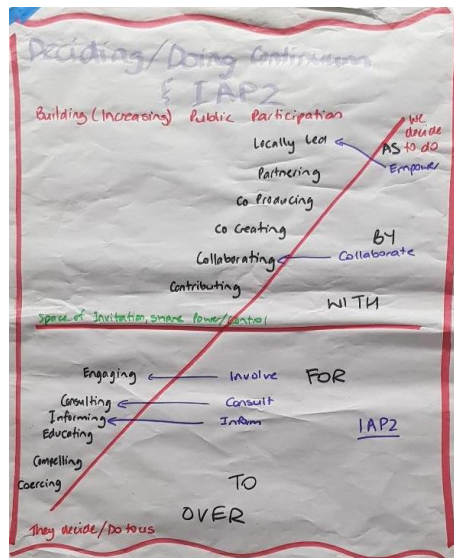 Deciding/Doing Continuum
& IAP2
Building (Increasing) Public Participation
We
decide
to do
Locally Led
AS
Empower
Partnering
Co Producing
Co Creating
BY
Collaborating
Collaborate
Contributing
WITH
Space of Invitation, share Power/Control
Engaging
Involve
FOR
Consulting
Consult
Informing
Inform
IAP2
Educating
Compelling
Coercing
TO
OVER
They decide/Do to us